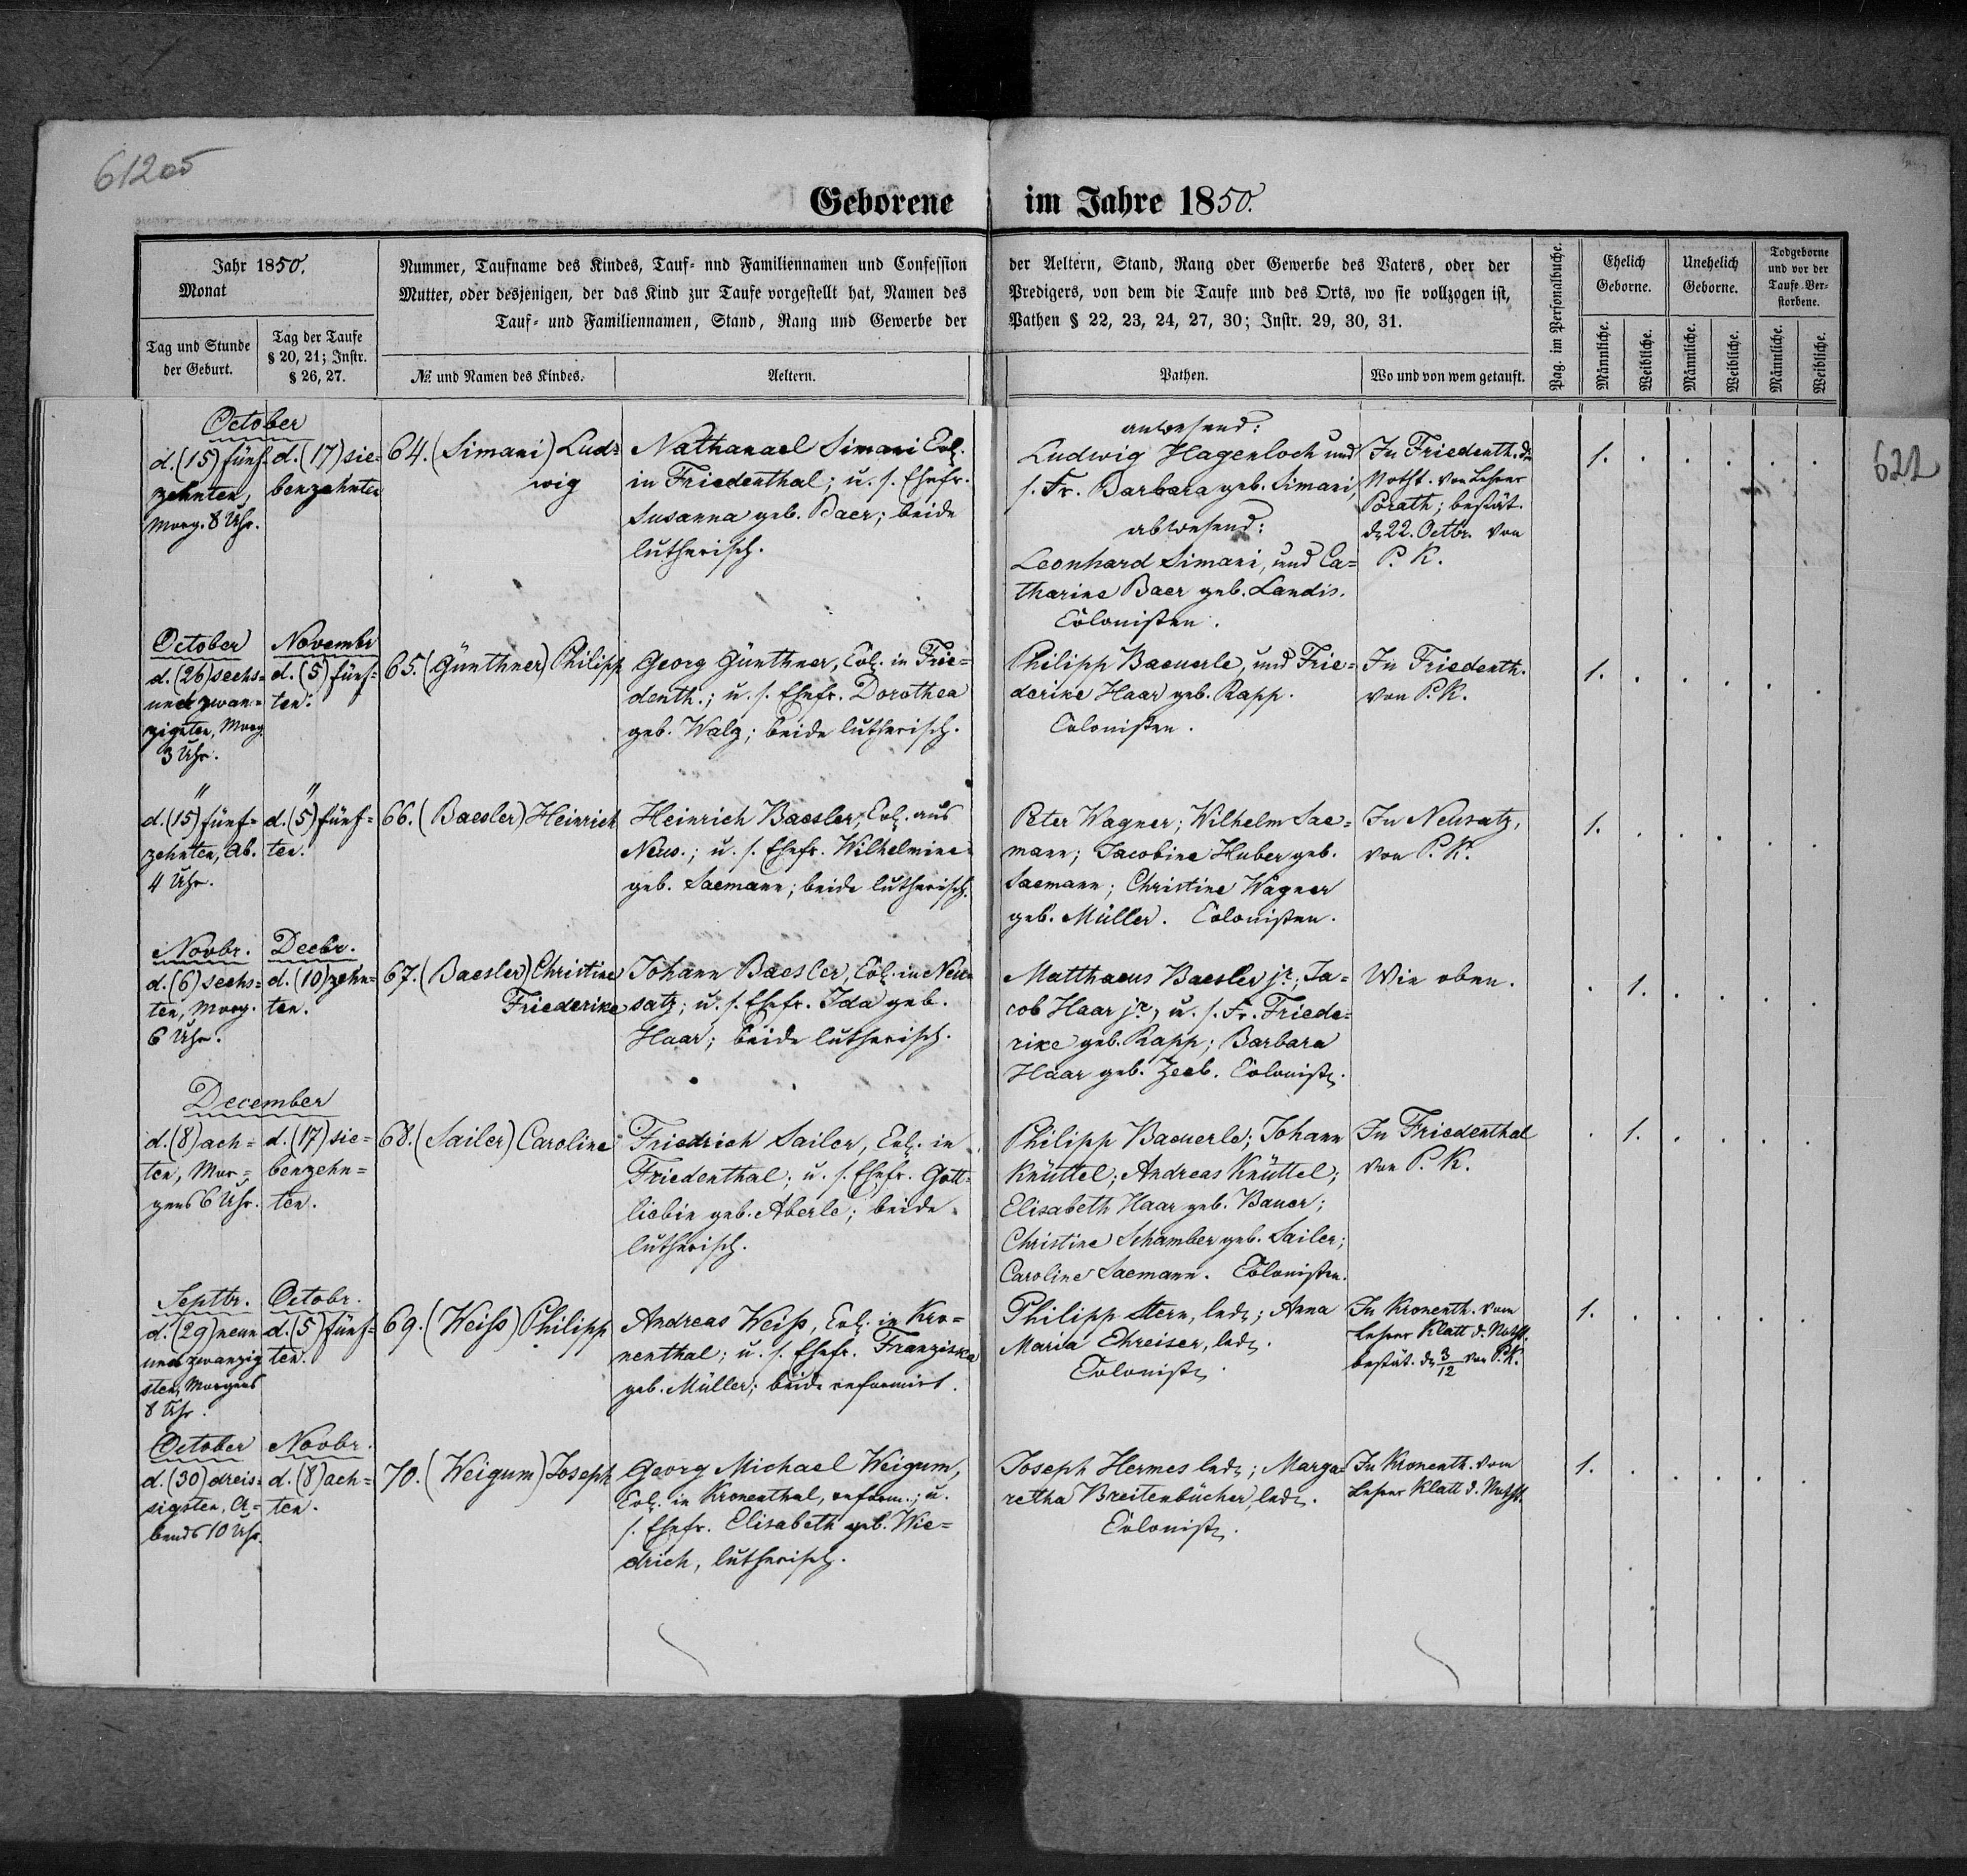 612 05
Geborene im Jahre 1850.
Jahr 1850.
Monat
Tag und Stunde
der Geburt.
Tag der Taufe
§ 20, 21; Instr.
§ 26, 27.
Nummer, Taufname des Kindes, Tauf- nnd Familiennamen und Confession
Mutter, oder desjenigen, der das Kind zur Taufe vorgestellt hat, Namen des
Tauf- und Familiennamen, Stand, Rang und Gewerbe der
№. und Namen des Kindes.
Aeltern.
der Aeltern, Stand, Rang oder Gewerbe des Vaters, oder der
Predigers, von dem die Taufe und des Orts, wo sie vollzogen ist,
Pathen § 22, 23, 24, 27, 30; Instr. 29, 30, 31.
Pathen.
Wo und von wem getauft.
Pag. im Personalbuche.
Ehelich
Geborne.
Unehelich
Geborne.
Todgeborne
und vor der
Taufe Ver-
storbene.
Männliche.
Weibliche.
Männliche.
Weibliche.
Männliche.
Weibliche.
October
d. (15) fünf-
zehnten,
Morg. 8 Uhr.
d. (17) sie-
benzehnten
64. (Simani) Lud-
wig
Nathanael Simani Col.
in Friedenthal; u. s. Ehefr.
Susanna geb. Baer; beide
lutherisch.
anwesend:
Ludwig Hagenloch und
s. Fr. Barbara geb. Simani,
abwesend:
Leonhard Simani, und Ca-
tharine Baer geb. Landis.
Colonisten.
In Friedenth. d.
Notht. von Lehrer
Porath; bestät.
d. 22. Octbr. von
P. K.
1.
622
October
d. (26) sechs-
und zwan-
zigsten, Morg.
3 Uhr.
Novembr
d. (5) fünf-
ten.
65. (Günthner) Philipp
Georg Günthner, Col. in Frie-
denth.; u. s. Ehefr. Dorothea
geb. Walz; beide lutherisch.
Philipp Baeuerle, und Frie-
derike Haar geb. Rapp.
Colonisten.
In Friedenth.
von P. K.
1.
"
d. (15) fünf-
zehnten, Ab.
4 Uhr.
"
d. (5) fünf-
ten.
66. (Baesler) Heinrich
Heinrich Baesler, Col. aus
Neus.; u. s. Ehefr. Wilhelmine
geb. Saemann; beide lutherisch.
Peter Wagner; Wilhelm Sae-
mann; Jacobine Huber geb.
Saemann; Christine Wagner
geb. Müller. Colonisten.
In Neusatz,
von P. K.
1.
Novbr.
d. (6) sechs-
ten, Morg.
6 Uhr.
Decbr.
d. (10) zehn-
ten.
67. (Baesler) Christine
Friederike
Johann Baesler, Col. in Neu-
satz; u. s. Ehefr. Ida geb.
Haar; beide lutherisch.
Matthaeus Baesler jr.; Ja-
cob Haar jr., u. s. Fr. Friede-
rike geb. Rapp; Barbara
Haar geb. Zeeb. Colonist.
Wie oben.
1.
December
d. (8) ach-
ten, Mor-
gens 6 Uhr.
d. (17) sie-
benzehn-
ten.
68. (Sailer) Caroline
Friedrich Sailer, Col. in
Friedenthal; u. s. Ehefr. Gott-
liebin geb. Aberle; beide
lutherisch.
Philipp Baeuerle; Johann
Knüttel; Andreas Knüttel;
Elisabeth Haar geb. Bauer;
Christine Schamber geb. Sailer;
Caroline Saemann. Colonisten.
In Friedenthal
von P. K.
1.
Septbr.
d. (29) neun
und zwanzig
sten, Morgens
8 Uhr.
Octobr.
d. (5) fünf-
ten.
69. (Weiss) Philipp
Andreas Weiss, Col. in Kro-
nenthal; u. s. Ehefr. Franziska
geb. Müller; beide reformirt.
Philipp Stern, led.; Anna
Maria Ehreiser, led.
Colonist.
In Kronenth. vom
Lehrer Klatt d. Notht.
bestät. d. 3/12 von P. K.
1.
October
d. (30) dreis-
sigsten, A-
bends 10 Uhr.
Novbr.
d. (8) ach-
ten.
70. (Weigum) Joseph
Georg Michael Weigum,
Col. in Kronenthal, reform.; u.
s. Ehefr. Elisabeth geb. Wie-
drich, lutherisch.
Joseph Hermes led.; Marga-
retha Breitenbücher, led.
Colonist.
In Kronenth. vom
Lehrer Klatt d. Notht.
1.